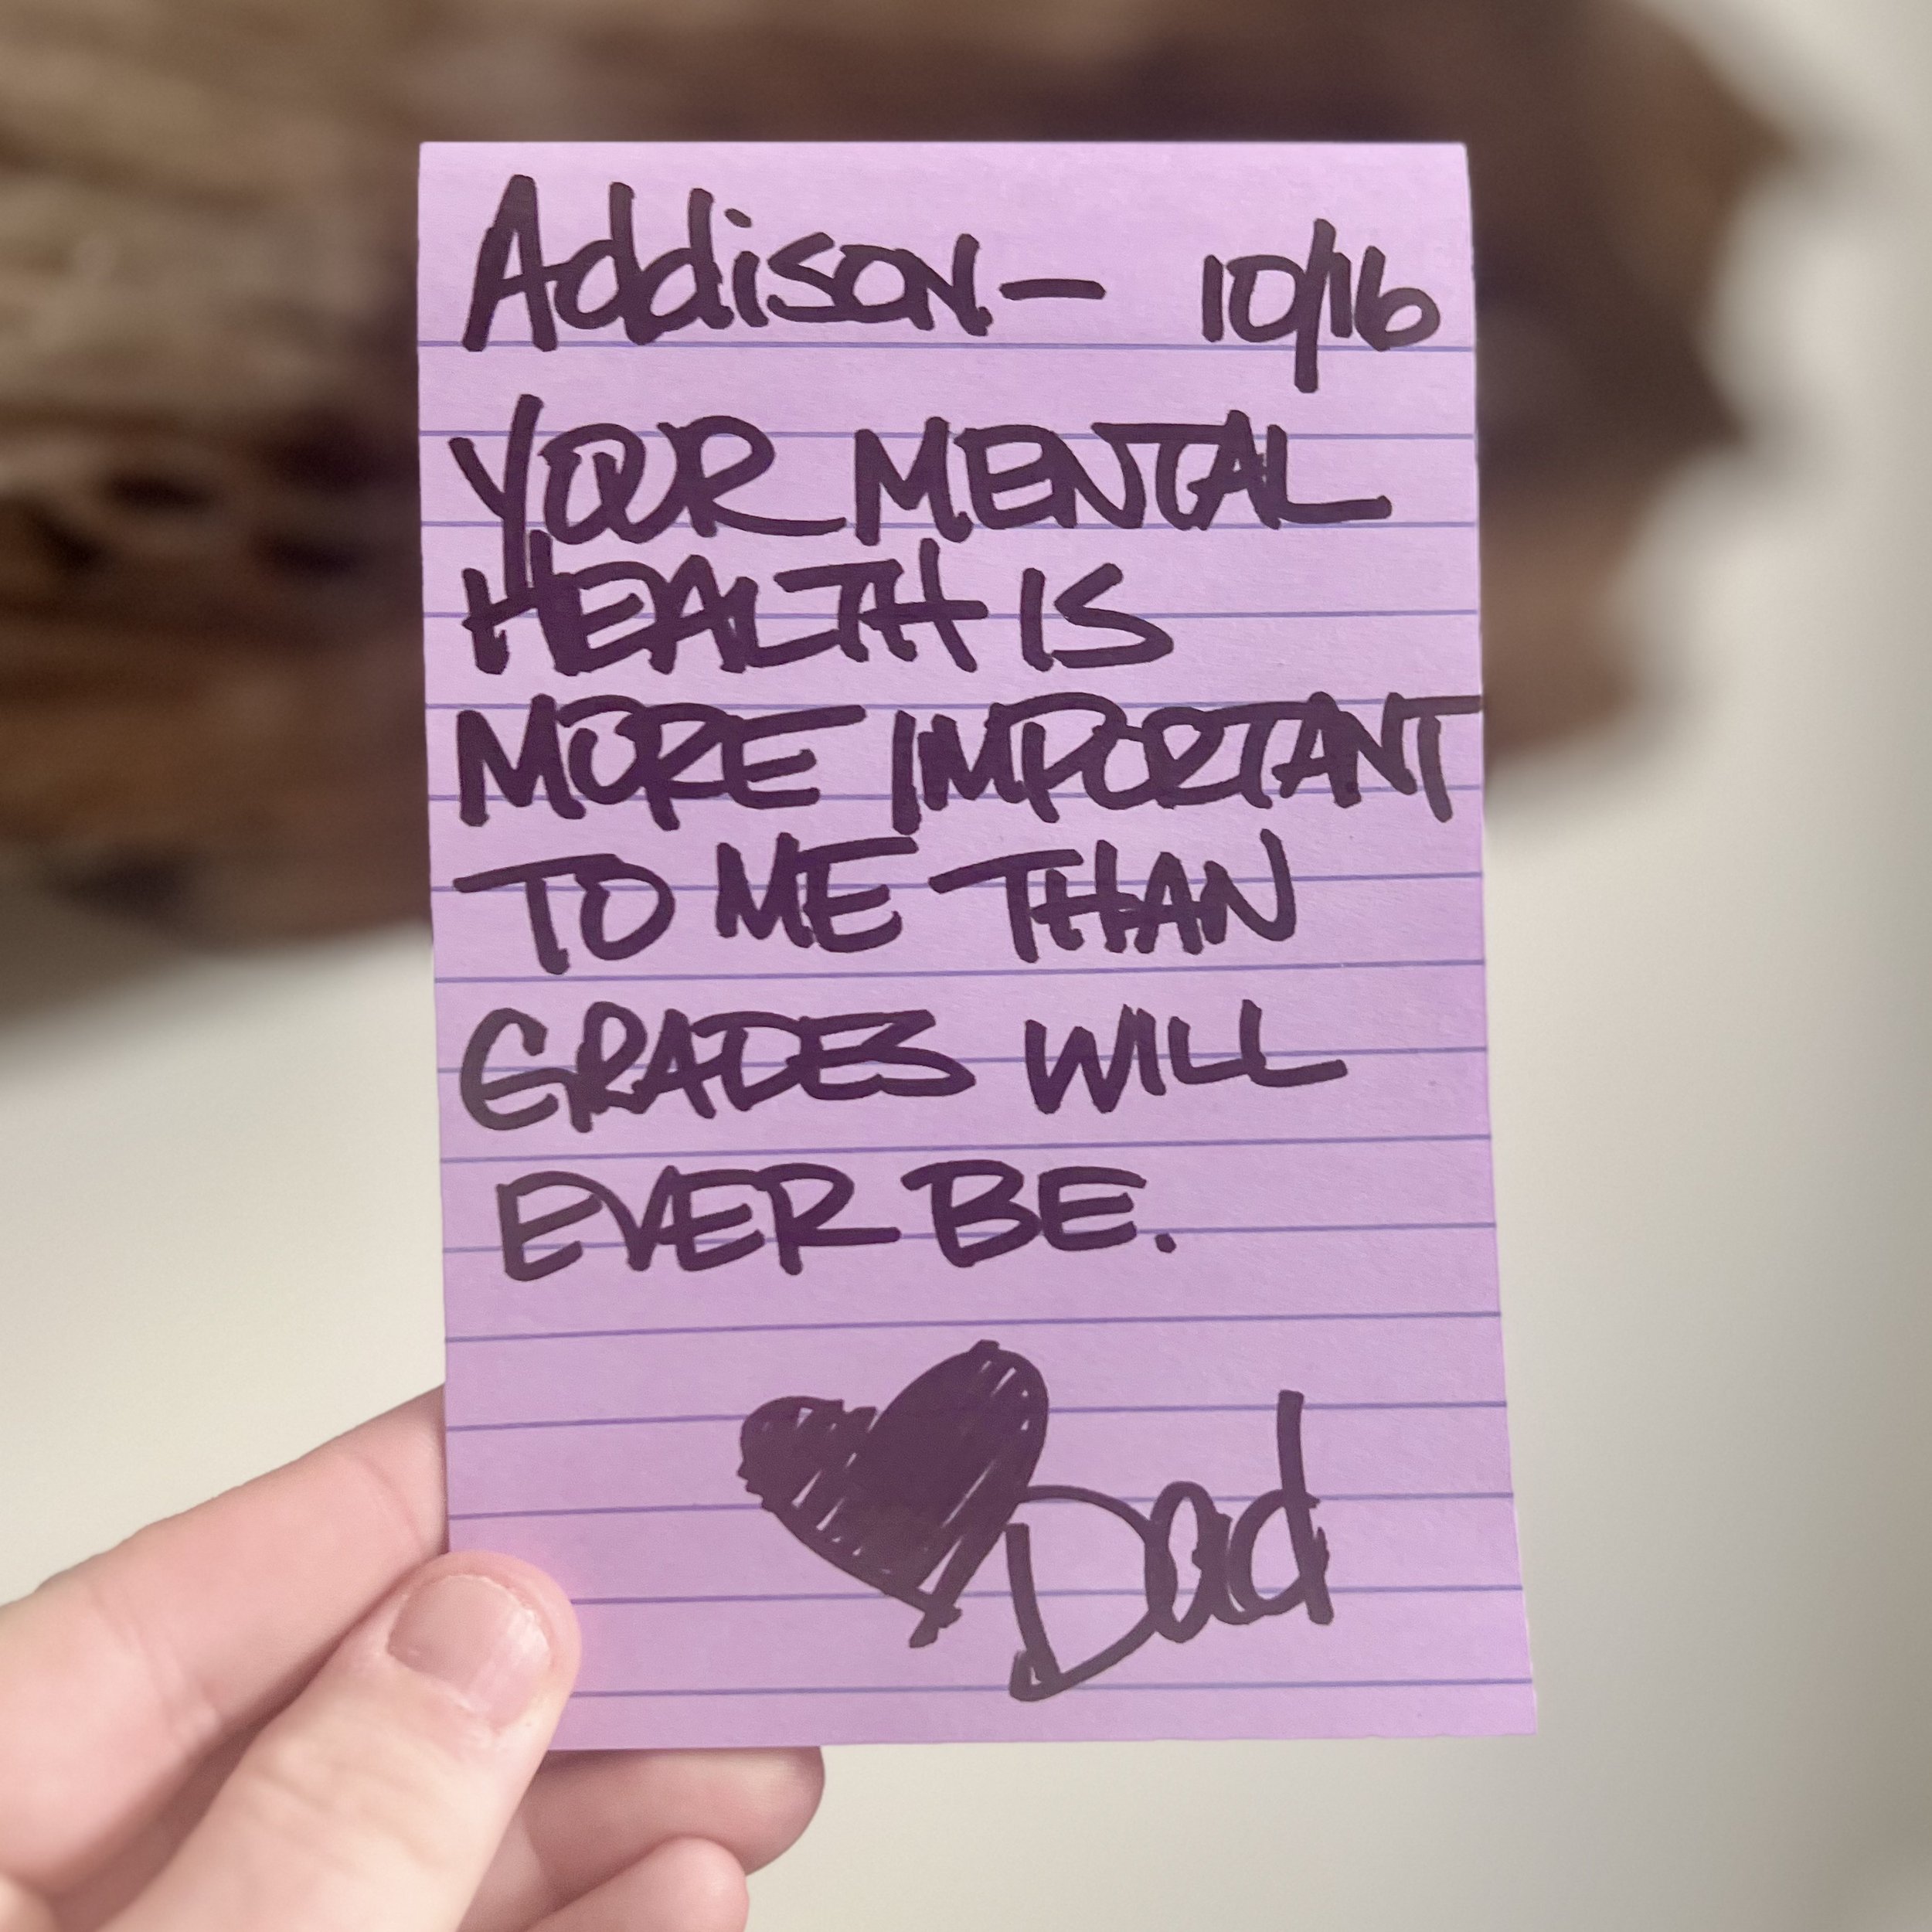 Addison— 10/16
YOUR MENTAL
HEALTH IS
MORE IMPORTANT
TO ME THAN
GRADES WILL
EVER BE.
Dad